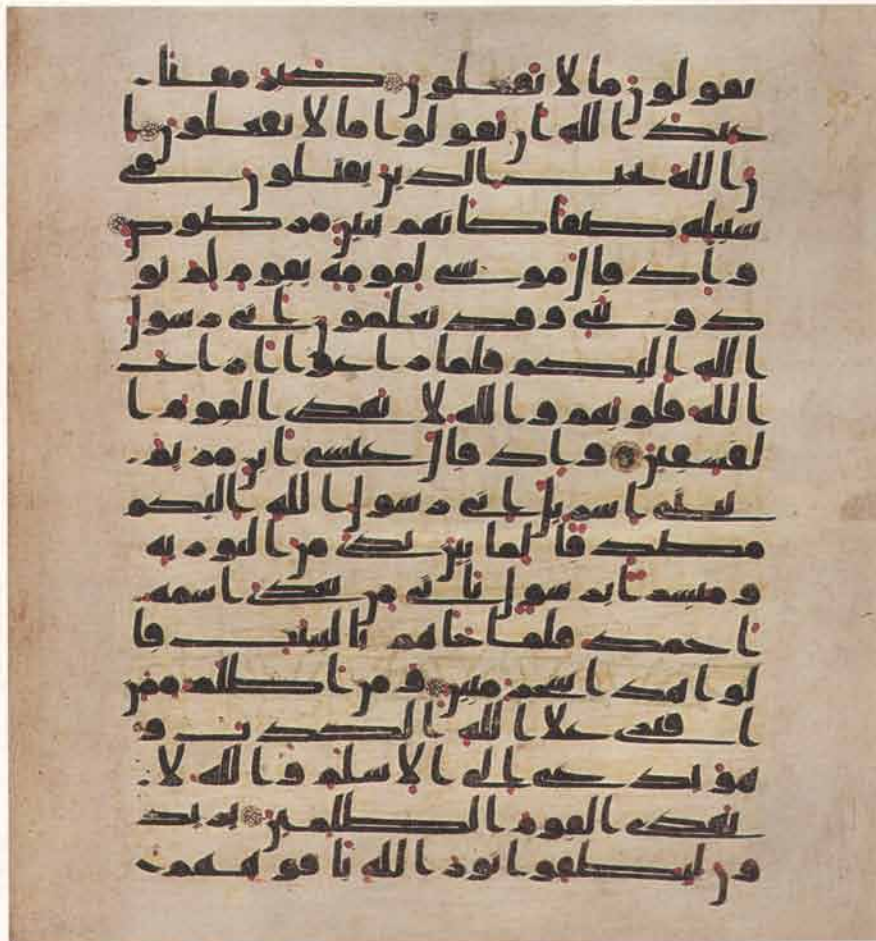 تقولون ما لا تفعلون كبر مقتا
عند الله ان تقولوا ما لا تفعلون ا
ن الله يحب الذين يقتلون في
سبيله صفا كانهم بنين مرصوص
و اذ قال موسى لقومه يقوم لم تو
ذونني وقد تعلمون اني رسول
الله اليكم فلما زاغوا ازاغ
الله قلوبهم والله لا يهدي القوم ا
لفسقين واذ قال عيسى ابن مريم
يبني اسريل اني رسول الله اليكم
مصدقا لما بين يدي من التورية
و مبشرا برسول ياتي من بعدي اسمه
احمد فلما جاهم بالبينت قا
لوا هذا سحر مبين و من اظلم ممن
افترى علا الله الكذب و
هو يدعى الى الاسلم والله لا
يهدي القوم الظلمين يريد
ون ليطفوا نور الله بافوههم